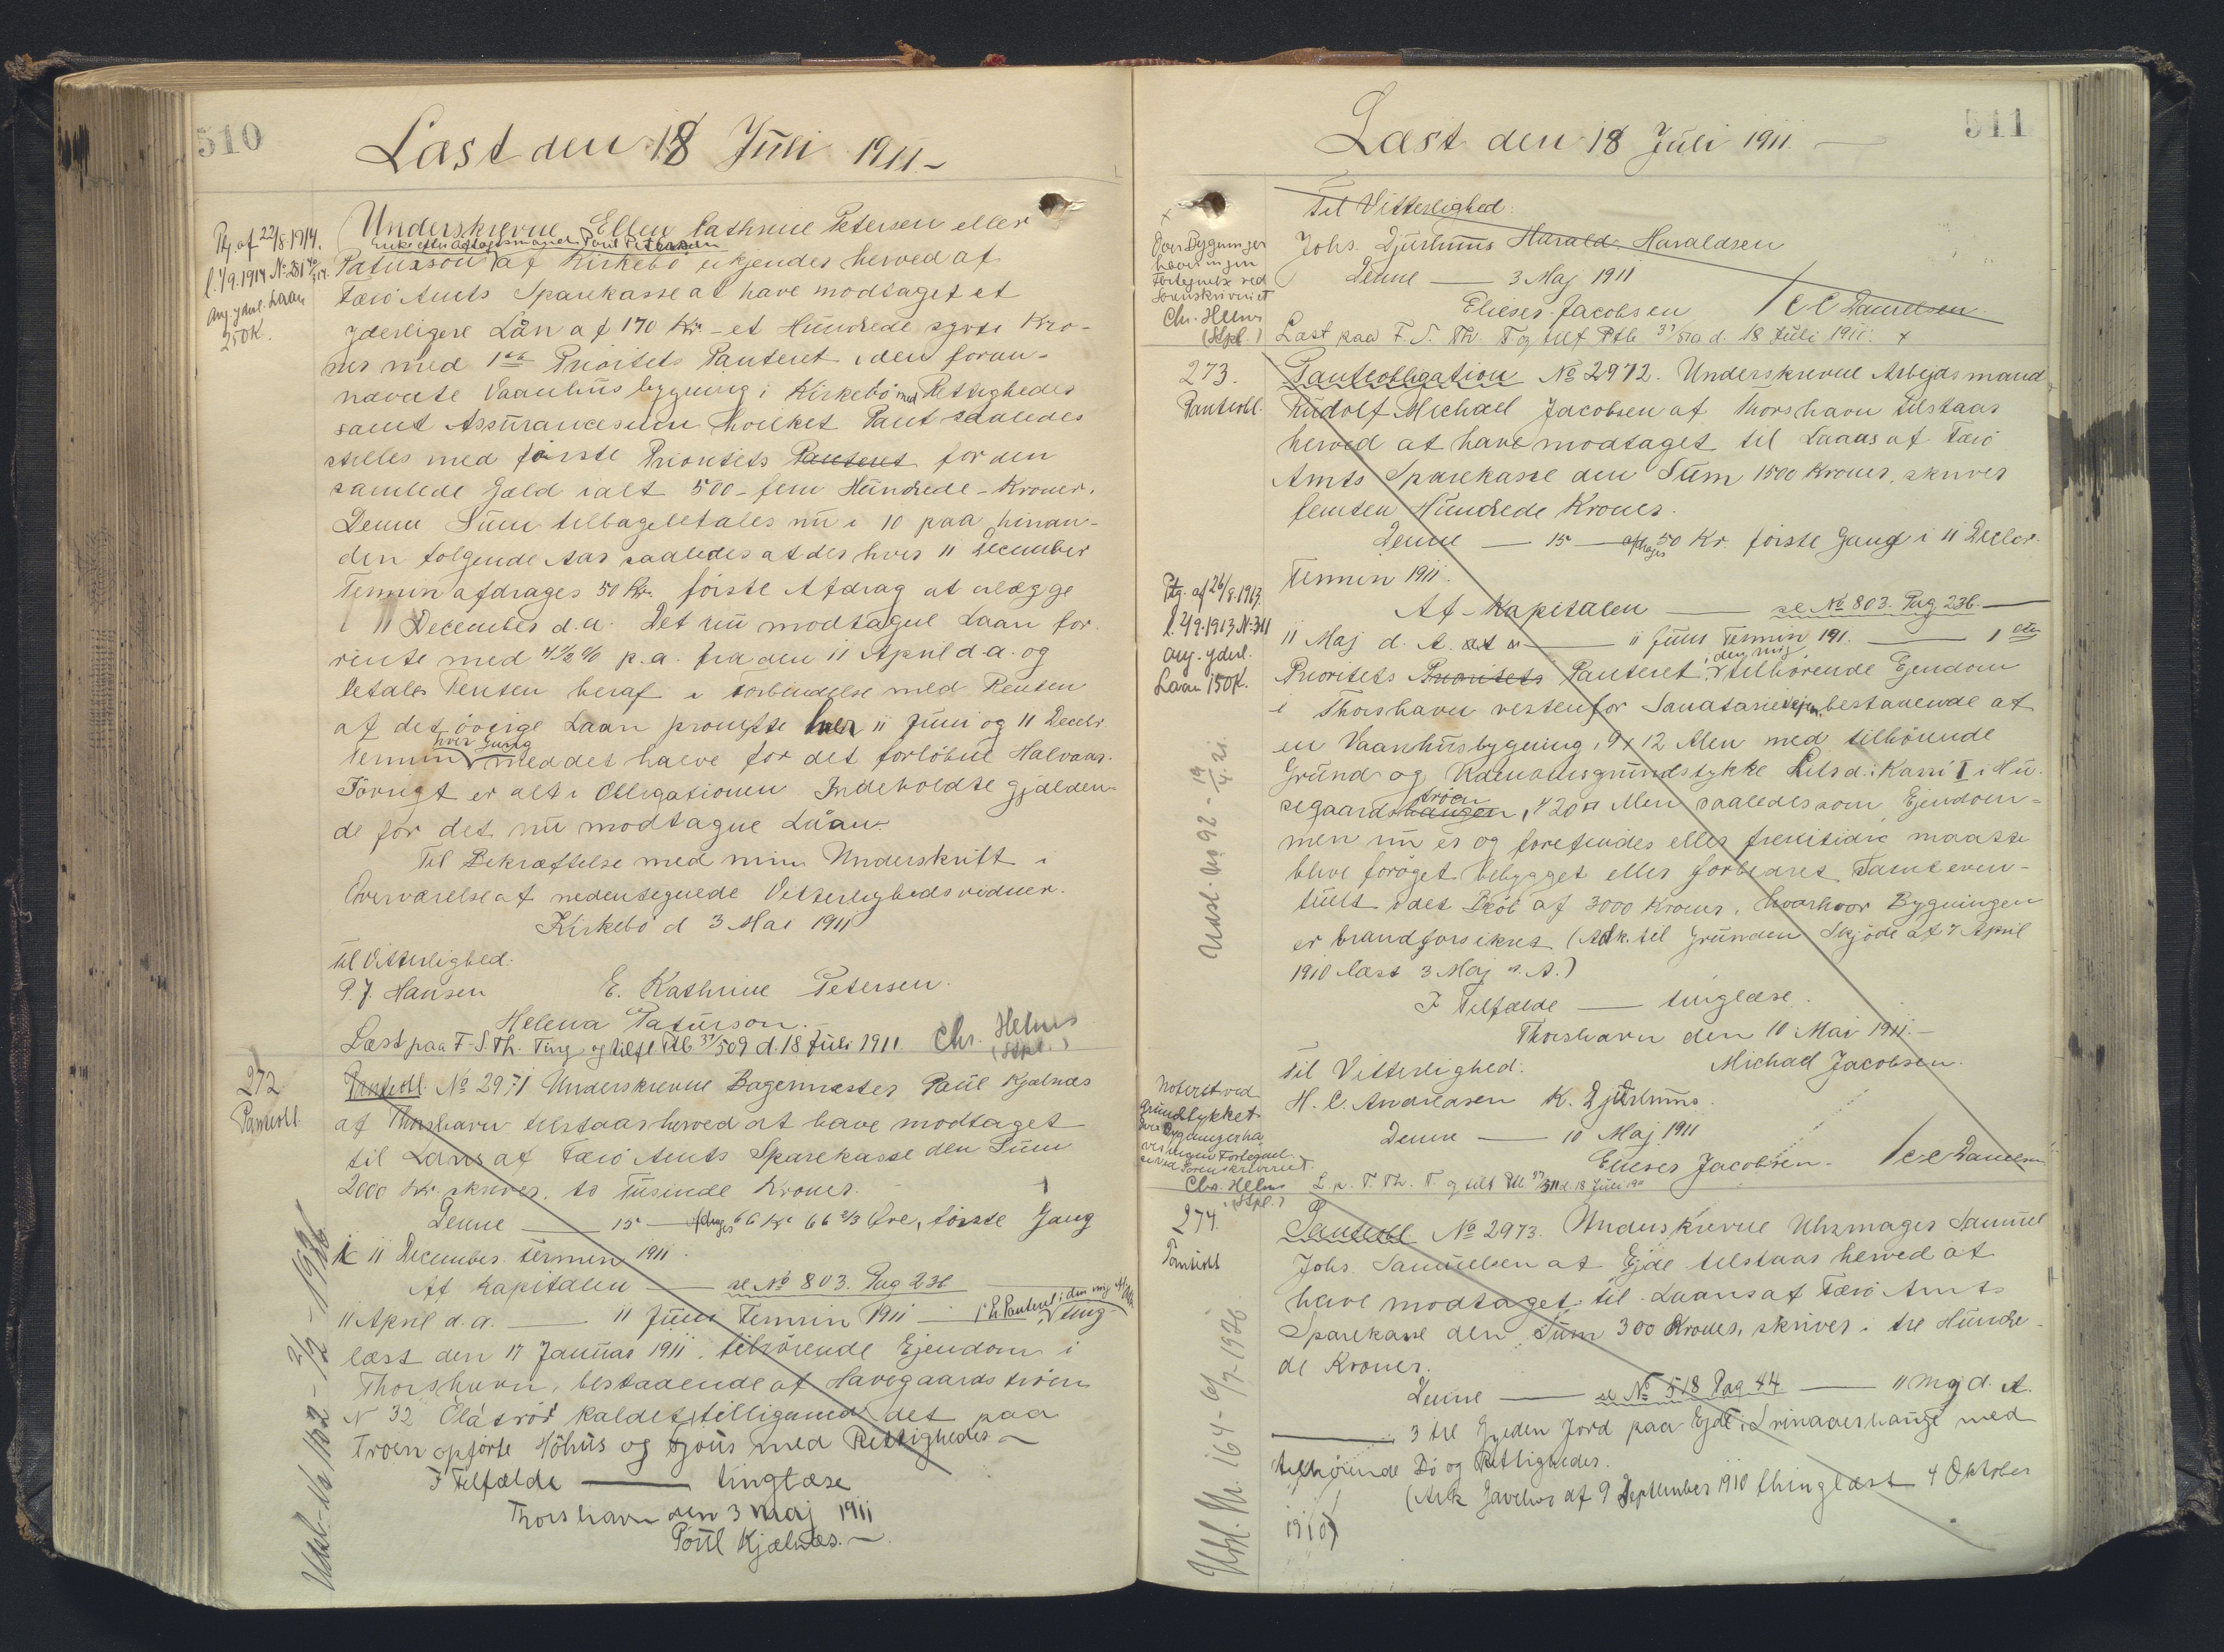 510
Læst den 18 Juli 1911 –
Ptg. af 22/8 1914.
l. 1/9. 1914 No 281
ang. yderl. Laan
250 K.
Underskrevne Ellen Cathrine Petersen eller
Enke efter Aftægtsmand Poul Petersen
Patursson af Kirkebø erkjender herved af
Færø Amts Sparekasse at have modtaget et
yderligere Lån af 170 Kr – et Hundrede syvti Kro-
ner med 1ste Prioritets Panteret i den foran-
nævnte Vaanhusbygning i Kirkebø med Rettigheder
samt Assurancesum hvilket Pant saaledes
stilles med første Prioritets Panteret for den
samlede Gæld ialt 500 – fem Hundrede – Kroner.
Denne Sum tilbagebetales nu i 10 paa hinan-
den følgende Aar saaledes at der hver 11 December
Termin afdrages 50 Kr. første Afdrag at erlægge
i 11 December d. a. Det nu modtagne Laan for-
rente med 4 1/2 % p. a. fra den 11 April d. a. og
betales Renten heraf i Forbindelse med Renten
af det øvrige Laan promfte hver 11 Juni og 11 Decebr
hver Gang
Termin med det halve for det forløbne Halvaar.
Førrigt er alt i Obligationen Indeholdte gjælden-
de for det nu modtagne Låan.
Til Bekræftelse med min Underskrift i
Overværelse af nedentegnede Vitterlighedsvidner.
Kirkebø d 3 Mai 1911
Til Vitterlighed:
P. J. Hansen E. Kathrine Petersen.
Helena Patursson.
Læst paa F. S. Th. Ting og tilf. Ptb 37/509 d. 18 Juli 1911. Chr. Helms
(Stpl.)
272
Panteobl.
Panteobl. No 2971 Underskrevne Bagermester Paul Kjølnæs
af Thorshavn tilstaar herved at have modtaget
til Laans af Færø Amts Sparekasse den Sum
2000 Kr. skriver, to Tusinde Kroner.
Denne — 15 — afdrages 66 Kr 66 2/3 Øre, første Gang
i 11 December Termin 1911.
Af Kapitalen — se No 803. Pag 236 —
11 April d. a. — 11 Juni Termin 1911 — 1 Pr. Panteret i den mig
læst den 17 Januar 1911. tilhørende Ejendom i
Thorshavn, bestaaende af Havegaards trøen
N 32 Olátrøð kaldet, tilligemed det paa
Trøen opførte Höhus og Fjøus med Rettigheder –
I Tilfælde — tinglæse
Thorshavn den 3 Maj 1911
Poul Kjølnæs. –
Udsl. No 102 – 2/2 – 1926
511
Læst den 18 Juli 1911. —
Over Bygninger
haves ingen
Fortegnelse ved
Sorenskriveriet
Chr. Helms
(Stpl.)
Til Vitterlighed:
Johs. Djurhuus Harald Haraldsen
Denne — 3 Maj 1911
Elieser Jacobsen / C C Danielsen
Læst paa F. S. Th. T og tilf Ptb 37/510 d. 18 Juli 1911. x
273.
Panteobl.
Panteobligation No 2972. Underskrevne Arbejdsmand
Rudolf Michael Jacobsen af Thorshavn tilstaar
herved at have modtaget til Laans af Færø
Amts Sparekasse den Sum 1500 Kroner, skriver
femten Hundrede Kroner.
Denne — 15 — afdrages 50 Kr. første Gang i 11 Decbr.
Termin 1911.
Ptg. af 26/8. 1913.
l. 2/9. 1913 N. 311
ang. yderl.
Laan 150 K.
Af Kapitalen — se No 803. Pag 236. —
11 Maj d. A. — 11 Juni Termin 191. — 1ste
Prioritets Prioritets Panteret i den mig tilhørende Ejendom
i Thorshavn vestenfor Sanatorievejen bestaaende af
en Vaanhusbygning, 9 x 12 Alen med tilhørende
Grund og
segaardstrøen, 420 □ Alen saaledes som Ejendom-
men nu er og forefindes eller fremtidig maatte
blive forøget bebygget eller forbedret samt even-
tuelt i det Beløb af 3000 Kroner, hvorfor Bygningen
er brandforsikret (Adk. til Grunden Skjøde af 7 April
1910 læst 3 Maj s. A.)
I Tilfælde — tinglæse.
Thorshavn den 10 Mai 1911. –
Til Vitterlighed: Michael Jacobsen.
H. C. Andreasen K. Djurhuus.
Denne — 10 Maj 1911
Elieser Jacobsen – / C C Danielsen
L. p. F. Th. T. og tilf Ptb 37/511 d. 18 Juli 1911
Udsl. No 92 – 19/4. 21.
Noteret ved
Grundstykket
Over Bygninger ha-
ves ingen Fortegnel-
se ved Sorenskriveriet
Chr. Helms
(Stpl.)
274.
Panteobl
Panteobl No 2973. Underskrevne Uhrmager Samuel
Johs. Samuelsen af Ejde tilstaar herved at
have modtaget til Laans af Færø Amts
Sparekasse den Sum 300 Kroner, skriver: tre Hundre-
de Kroner.
Denne — se No 518 Pag 44 — 11 Maj d. A.
— 3 tre Gylden Jord paa Ejde i med
tilhørende Bø og Rettigheder.
(Adk Gavebrev af 9 September 1910 thinglæst 4 Oktober
1910)
Udsl. No. 164 – 6/7 – 1926.